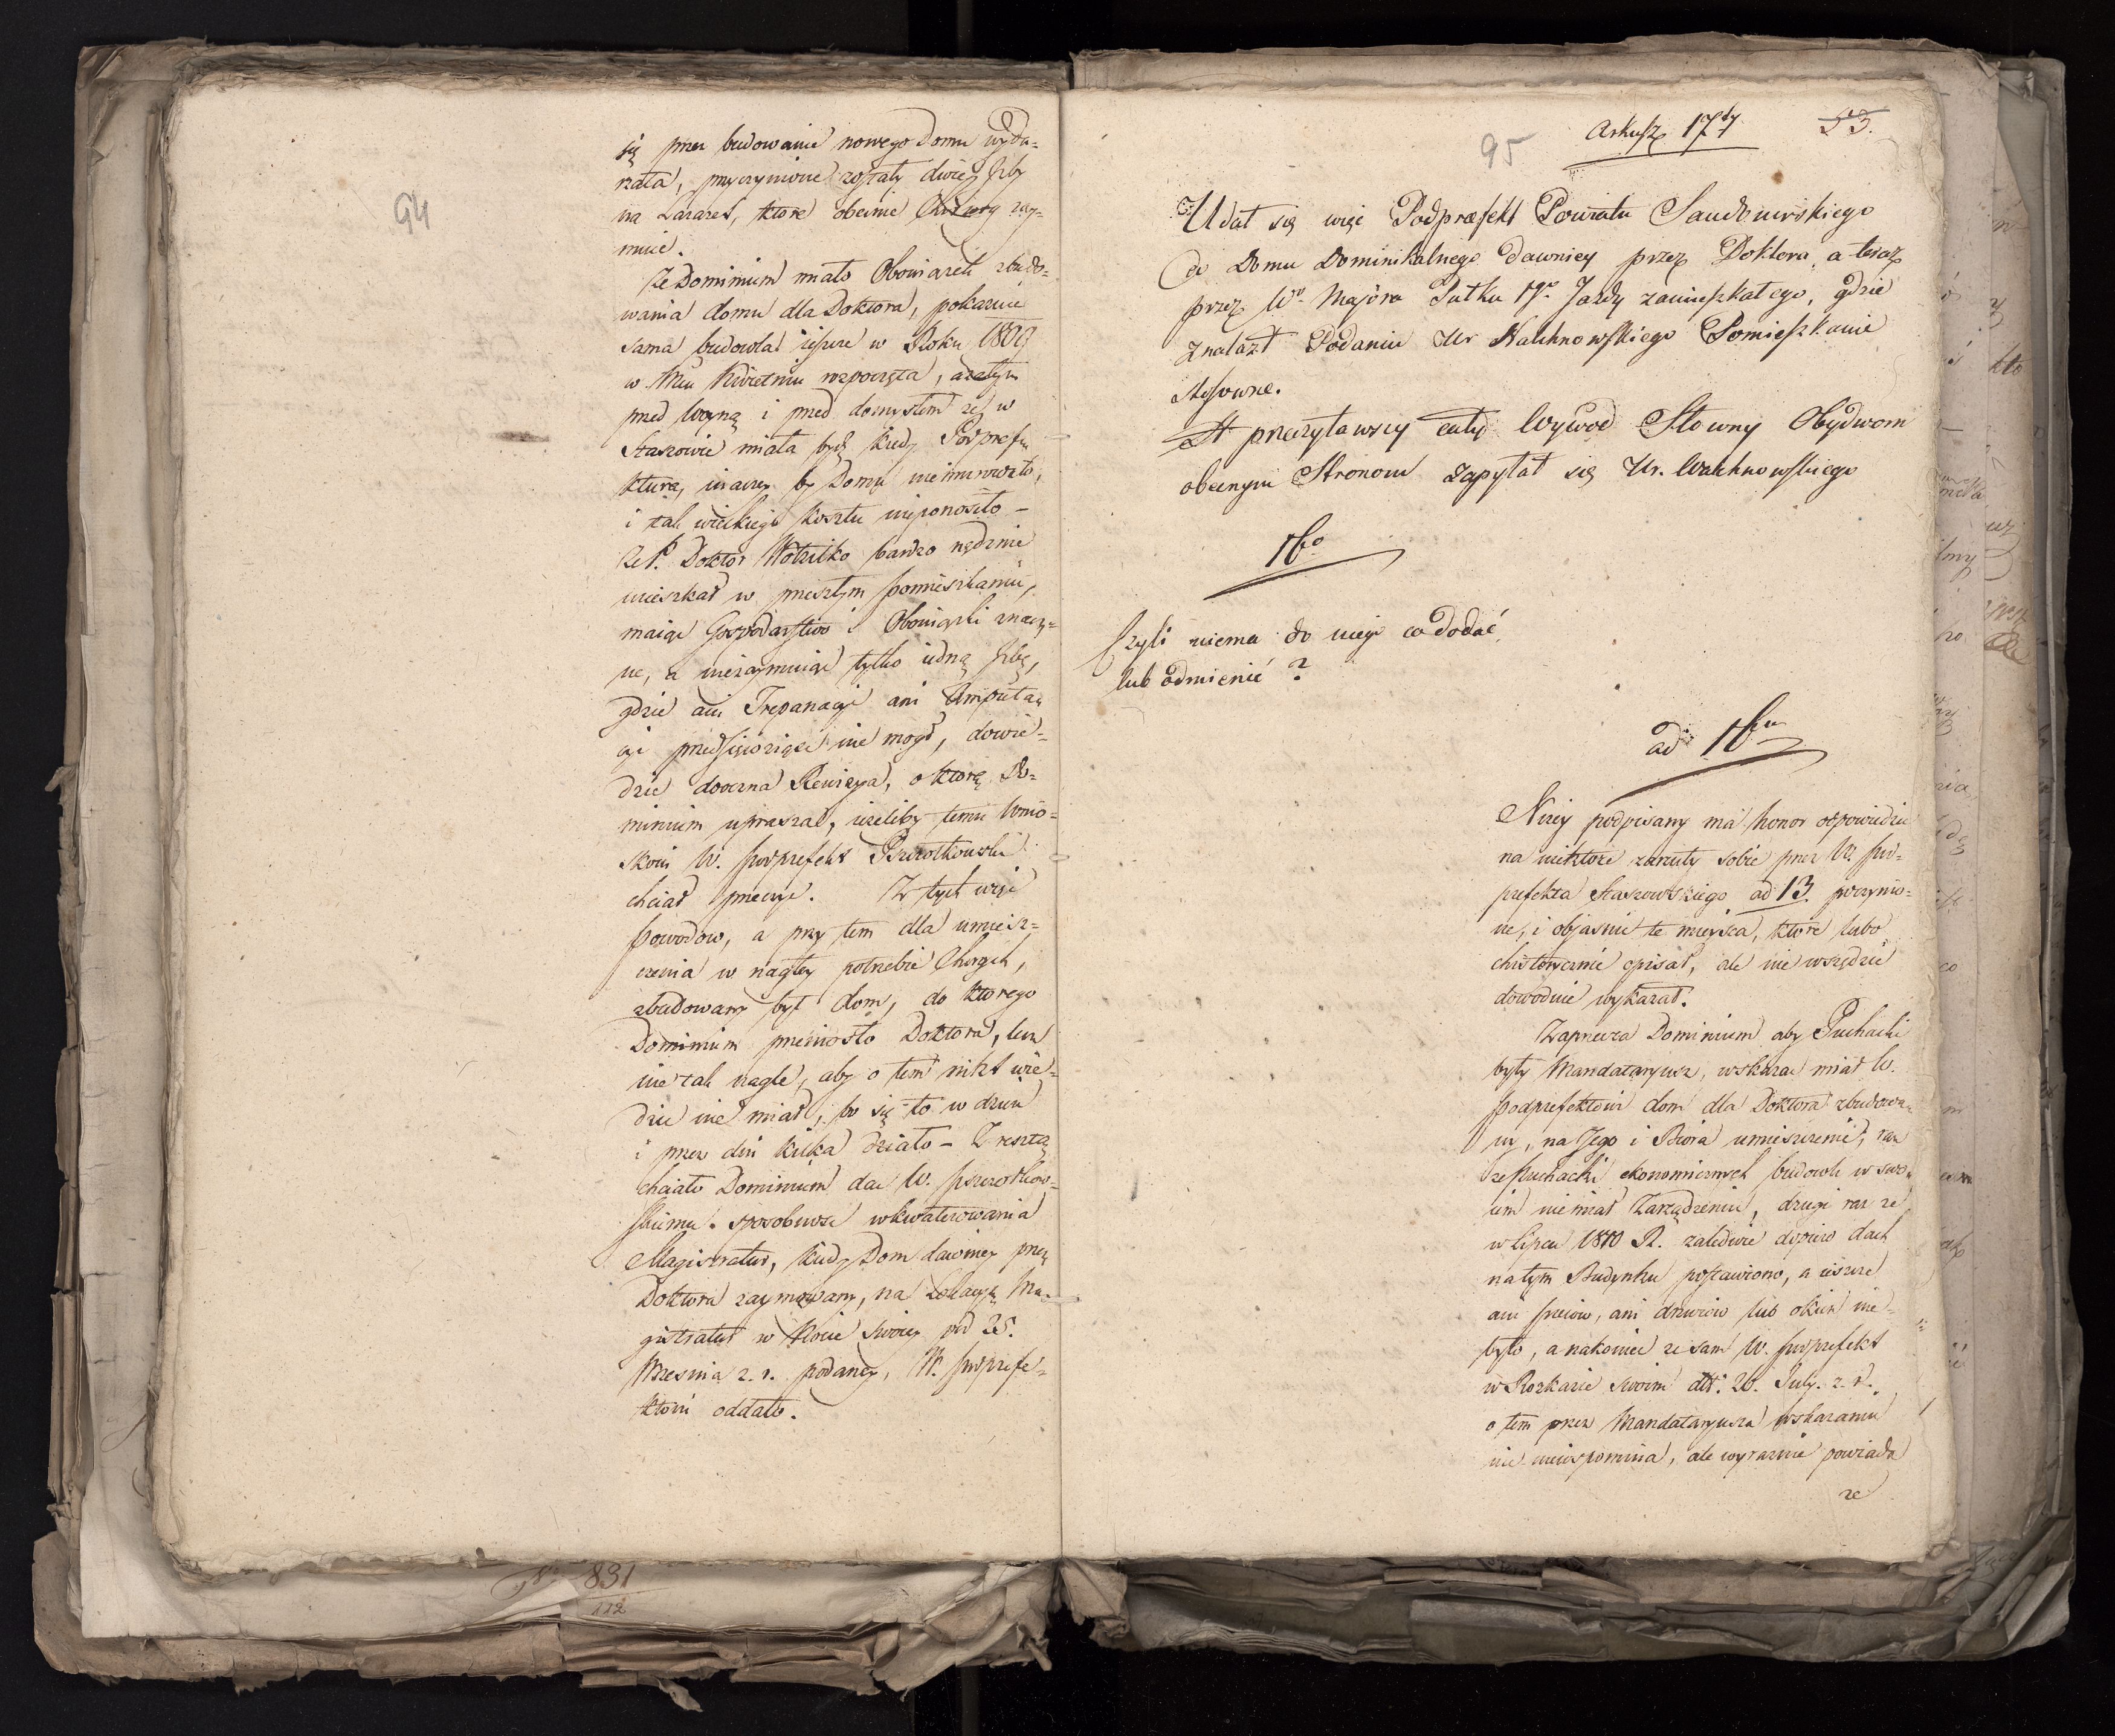 94
się przez budowanie nowego Domu wyda-
rzała, przyczynione zostały dwie Izby
na Lazaret, które obecnie Chirurg zay-
muie.
Ze Dominium miało Obowiązek zbudo-
wania domu dla Doktora, pokazuie
sama budowla ieszcze w Roku 1809
w Mcu Kwietniu rozpoczęta, a zatym
przed Woyną i przed domysłem że w
Staszowie miała bydź kiedy Podprefe-
ktura, inaczey by Domu niemurowało,
i tak wielkiego kosztu nieponosiło —
Ze P. Doktor Wotzilko bardzo nędznie
mieszkał w przeszłym pomieszkaniu,
maiąc Gospodarstwo i Obowiązki znacz-
ne, a niezaymuiąc tylko iedną Izbę,
gdzie ani Trepanacyi ani Amputa-
cyi przedsięwziąść nie mógł, dowie-
dzie doczna Rewizya, o którą Do-
minium uprasza, ieżeliby temu Wnio-
skowi W. podprefekt Pszczołkowski
chciał przeczyć. Z tych więc
powodow, a przy tem dla umiesz-
czenia w nagłey potrzebie Chorych,
zbudowany był dom, do którego
Dominium przeniosło Doktora, lecz
nie tak nagle, aby o tem nikt wie-
dzieć nie miał, bo się to w dzień
i przez dni kilka działo — Zresztą
chciało Dominium dać W. Pszczołkow-
skiemu sposobność wkwaterowania
Magistratur, kiedy Dom dawniey przez
Doktora zaymowany, na Lokacyą Ma-
gistratur w Nocie swoiey od 25.
Wrzesnia z. r. podaney, W. podprefe-
ktowi oddało.
831
112
95
Arkusz 17ty
53.
Udał się więc Podprefekt Powiatu Sandomirskiego
do Domu Dominikalnego dawniey przez Doktora, a teraz
przez Wo Majora Pułku 1go Jazdy zamieszkałego, gdzie
znalazł Podaniu Ur Wachnowskiego Pomieszkanie
stosowne.
A przeczytawszy cały Wywod Słowny Obydwom
obecnym Stronom zapytał się Ur. Wachnowskiego
16o
Czyli niema do niego co dodać
lub odmienić?
ad 16um
Niżey podpisany ma honor odpowiedzieć
na niektóre zarzuty sobie przez W. pod-
prefekta Staszowskiego ad 13. poczynio-
ne, i objasnić te mieysca, które lubo
historycznie opisał, ale nie wszędzie
dowodnie wykazał.
Zaprzecza Dominium aby Puchacki
były Mandataryusz, wskazać miał W.
podprefektowi dom dla Doktora zbudowa-
ny, na Jego i Biora umieszczenie, raz
że Puchacki ekonomicznych budowli w swo-
im niemiał Zarządzeniu, drugi raz że
w Lipcu 1810 R. zaledwie dopiero dach
na tym Budynku postawiono, a ieszcze
ani piecow, ani drzwiow lub okien nie-
było, a nakoniec że sam W. podprefekt
w Rozkazie swoim dtt. 20. July. z. r.
o tem przez Mandataryusza wskazaniu
nic niewspomina, ale wyraznie powiada
że